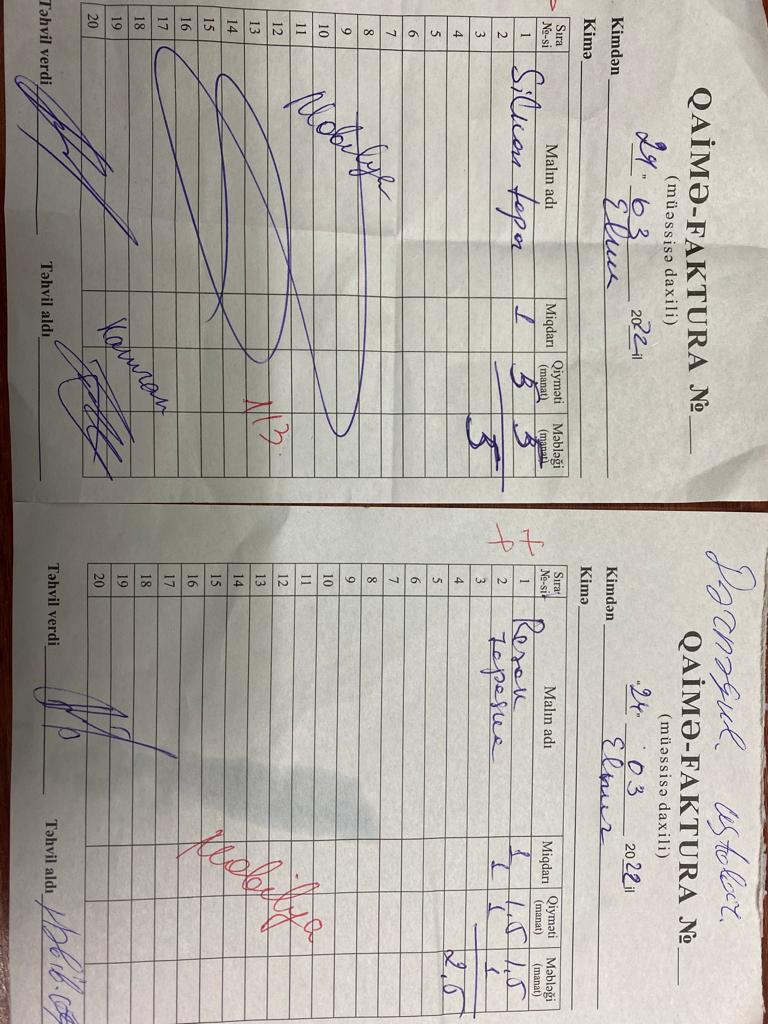 QAİMƏ-FAKTURA №
(müəssisə daxili)
"24" 03 2022 il
Kimdən
Kimə
Sıra №-si Malın adı Miqdarı Qiyməti (manat) Məbləği (manat)
1 Silikon 1 5 5
2
3 5
4
5
6
7
8
9
10 Mobilya
11
12
13 113
14
15
16
17
18
19
20
Kamran
Təhvil verdi Təhvil aldı
QAİMƏ-FAKTURA №
(müəssisə daxili)
"24" 03 2022 il
Kimdən
Kimə
Sıra №-si Malın adı Miqdarı Qiyməti (manat) Məbləği (manat)
1 1 1,5 1,5
2 1 1 1
3
4 2,5
5
6
7
8
9
10
11
12
13
14
15
16
17
18
19
20
Mobilya
Təhvil verdi Təhvil aldı